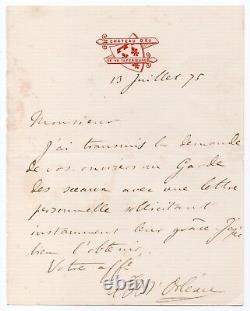 CHATEAU D'EU
13 Juillet 75
Monsieur
J'ai transmis la demande
de vos ouvriers au Garde
des sceaux avec une lettre
personnelle sollicitant
instamment leur grâce J'espère
bien l'obtenir.
Votre aff
d'Orléans